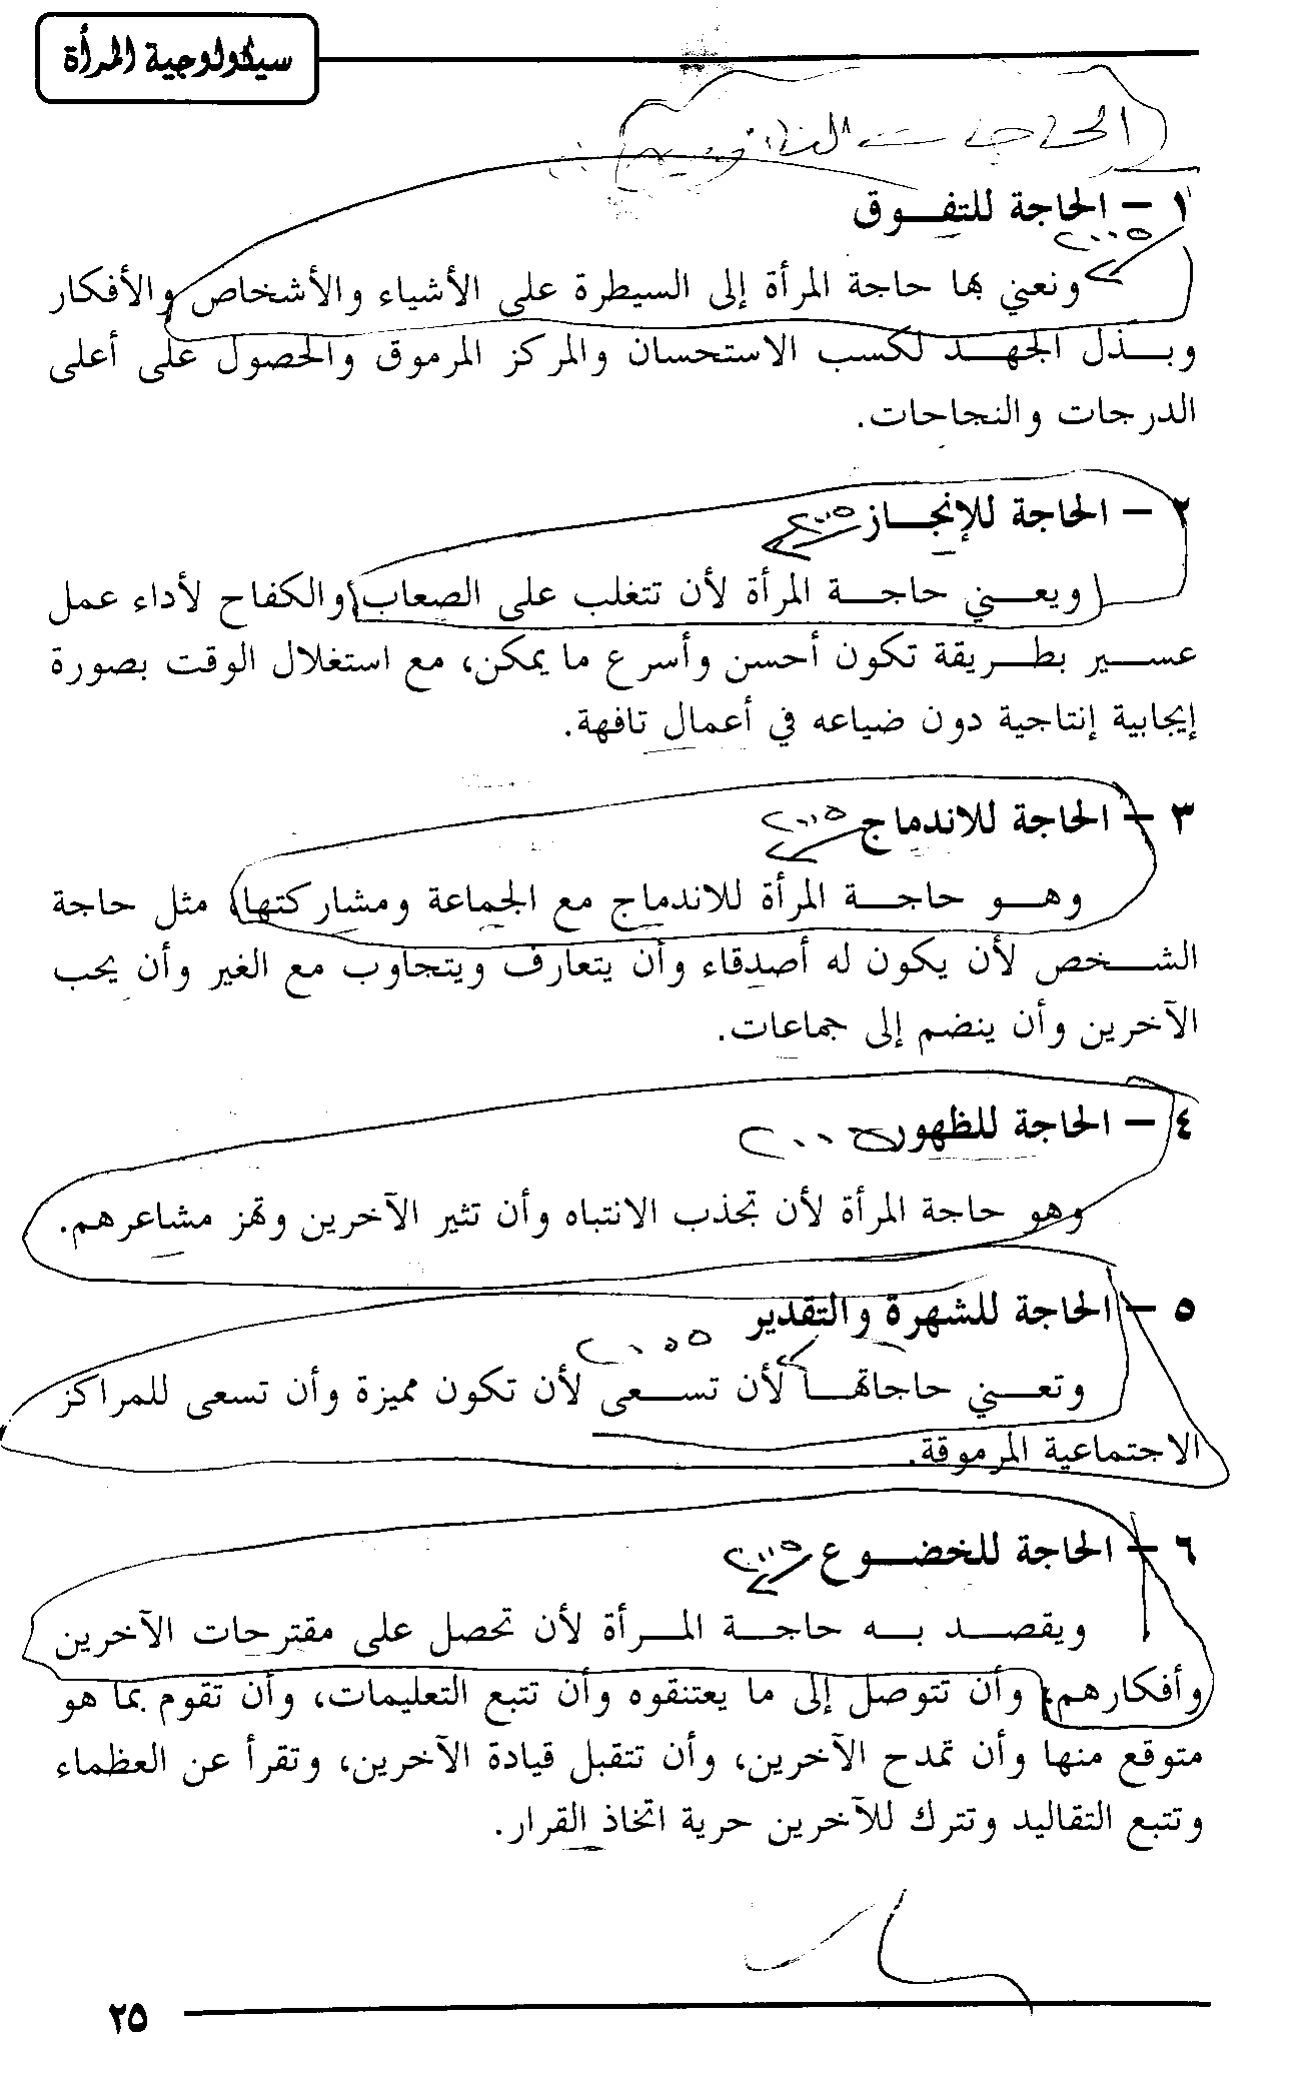 سيكولوجية المرأة
الحاجات الثانوية
١ – الحاجة للتفوق
2005
ونعني بها حاجة المرأة إلى السيطرة على الأشياء والأشخاص والأفكار
وبذل الجهد لكسب الاستحسان والمركز المرموق والحصول على أعلى
الدرجات والنجاحات.
٢ – الحاجة للإنجاز
2005
ويعني حاجة المرأة لأن تتغلب على الصعاب والكفاح لأداء عمل
عسير بطريقة تكون أحسن وأسرع ما يمكن، مع استغلال الوقت بصورة
إيجابية إنتاجية دون ضياعه في أعمال تافهة.
٣ – الحاجة للاندماج
2005
وهو حاجة المرأة للاندماج مع الجماعة ومشاركتها، مثل حاجة
الشخص لأن يكون له أصدقاء وأن يتعارف ويتجاوب مع الغير وأن يحب
الآخرين وأن ينضم إلى جماعات.
٤ – الحاجة للظهور
2005
وهو حاجة المرأة لأن تجذب الانتباه وأن تثير الآخرين وتهز مشاعرهم.
٥ – الحاجة للشهرة والتقدير
2005
وتعني حاجاتها لأن تسعى لأن تكون مميزة وأن تسعى للمراكز
الاجتماعية المرموقة.
٦ – الحاجة للخضوع
2005
ويقصد به حاجة المرأة لأن تحصل على مقترحات الآخرين
وأفكارهم، وأن تتوصل إلى ما يعتنقوه وأن تتبع التعليمات، وأن تقوم بما هو
متوقع منها وأن تمدح الآخرين، وأن تتقبل قيادة الآخرين، وتقرأ عن العظماء
وتتبع التقاليد وتترك للآخرين حرية اتخاذ القرار.
٢٥